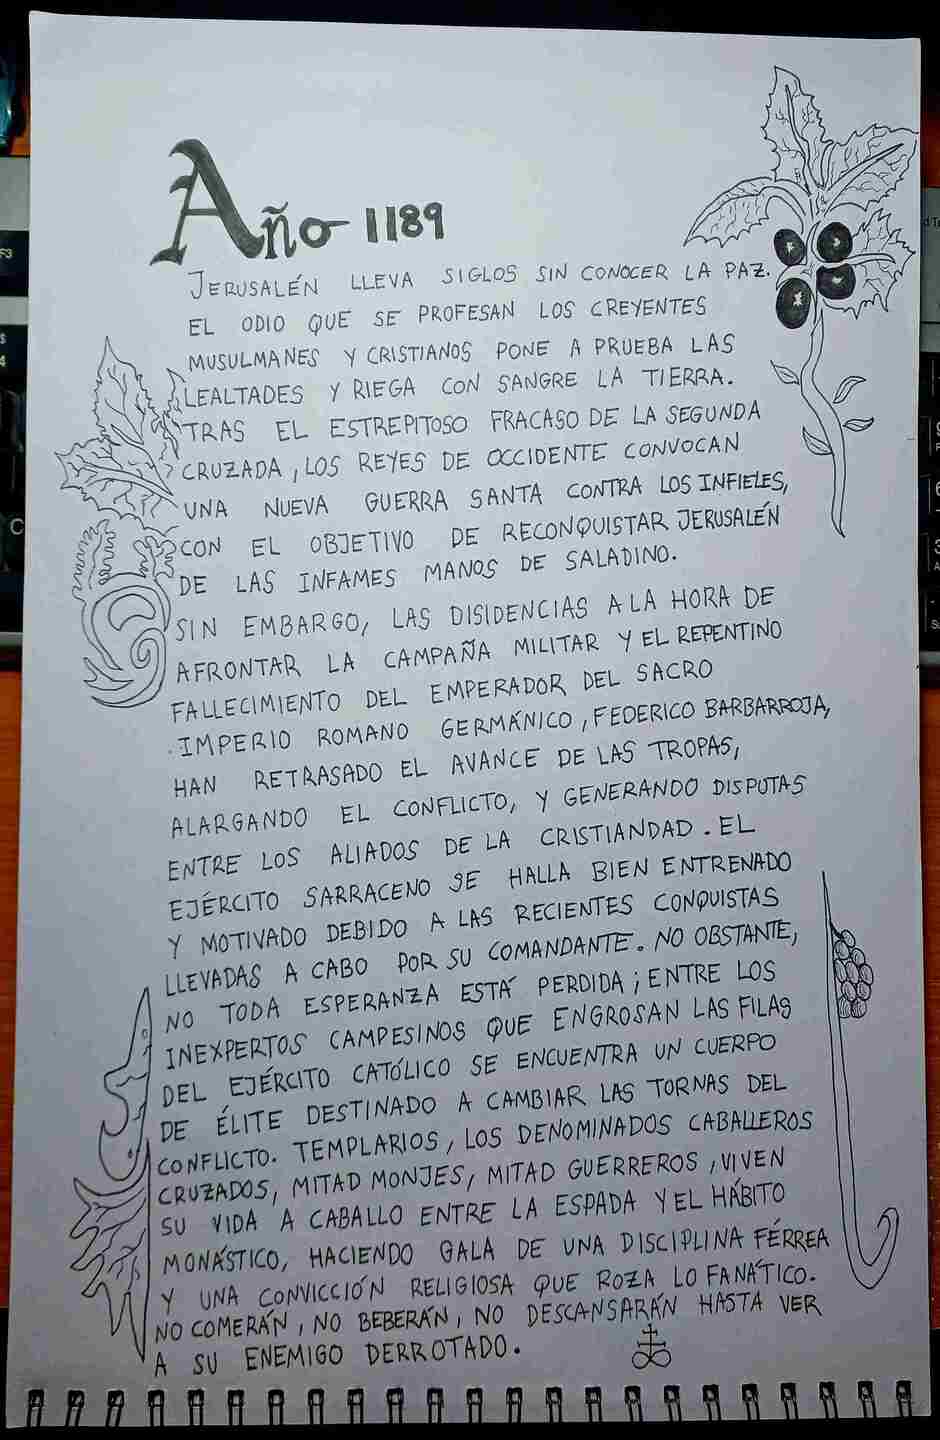 Año 1189
JERUSALÉN LLEVA SIGLOS SIN CONOCER LA PAZ.
EL ODIO QUE SE PROFESAN LOS CREYENTES
MUSULMANES Y CRISTIANOS PONE A PRUEBA LAS
LEALTADES Y RIEGA CON SANGRE LA TIERRA.
TRAS EL ESTREPITOSO FRACASO DE LA SEGUNDA
CRUZADA, LOS REYES DE OCCIDENTE CONVOCAN
UNA NUEVA GUERRA SANTA CONTRA LOS INFIELES,
CON EL OBJETIVO DE RECONQUISTAR JERUSALÉN
DE LAS INFAMES MANOS DE SALADINO.
SIN EMBARGO, LAS DISIDENCIAS A LA HORA DE
AFRONTAR LA CAMPAÑA MILITAR Y EL REPENTINO
FALLECIMIENTO DEL EMPERADOR DEL SACRO
IMPERIO ROMANO GERMÁNICO, FEDERICO BARBARROJA,
HAN RETRASADO EL AVANCE DE LAS TROPAS,
ALARGANDO EL CONFLICTO, Y GENERANDO DISPUTAS
ENTRE LOS ALIADOS DE LA CRISTIANDAD. EL
EJÉRCITO SARRACENO SE HALLA BIEN ENTRENADO
Y MOTIVADO DEBIDO A LAS RECIENTES CONQUISTAS
LLEVADAS A CABO POR SU COMANDANTE. NO OBSTANTE,
NO TODA ESPERANZA ESTÁ PERDIDA; ENTRE LOS
INEXPERTOS CAMPESINOS QUE ENGROSAN LAS FILAS
DEL EJÉRCITO CATÓLICO SE ENCUENTRA UN CUERPO
DE ÉLITE DESTINADO A CAMBIAR LAS TORNAS DEL
CONFLICTO. TEMPLARIOS, LOS DENOMINADOS CABALLEROS
CRUZADOS, MITAD MONJES, MITAD GUERREROS, VIVEN
SU VIDA A CABALLO ENTRE LA ESPADA Y EL HÁBITO
MONÁSTICO, HACIENDO GALA DE UNA DISCIPLINA FÉRREA
Y UNA CONVICCIÓN RELIGIOSA QUE ROZA LO FANÁTICO.
NO COMERÁN, NO BEBERÁN, NO DESCANSARÁN HASTA VER
A SU ENEMIGO DERROTADO.